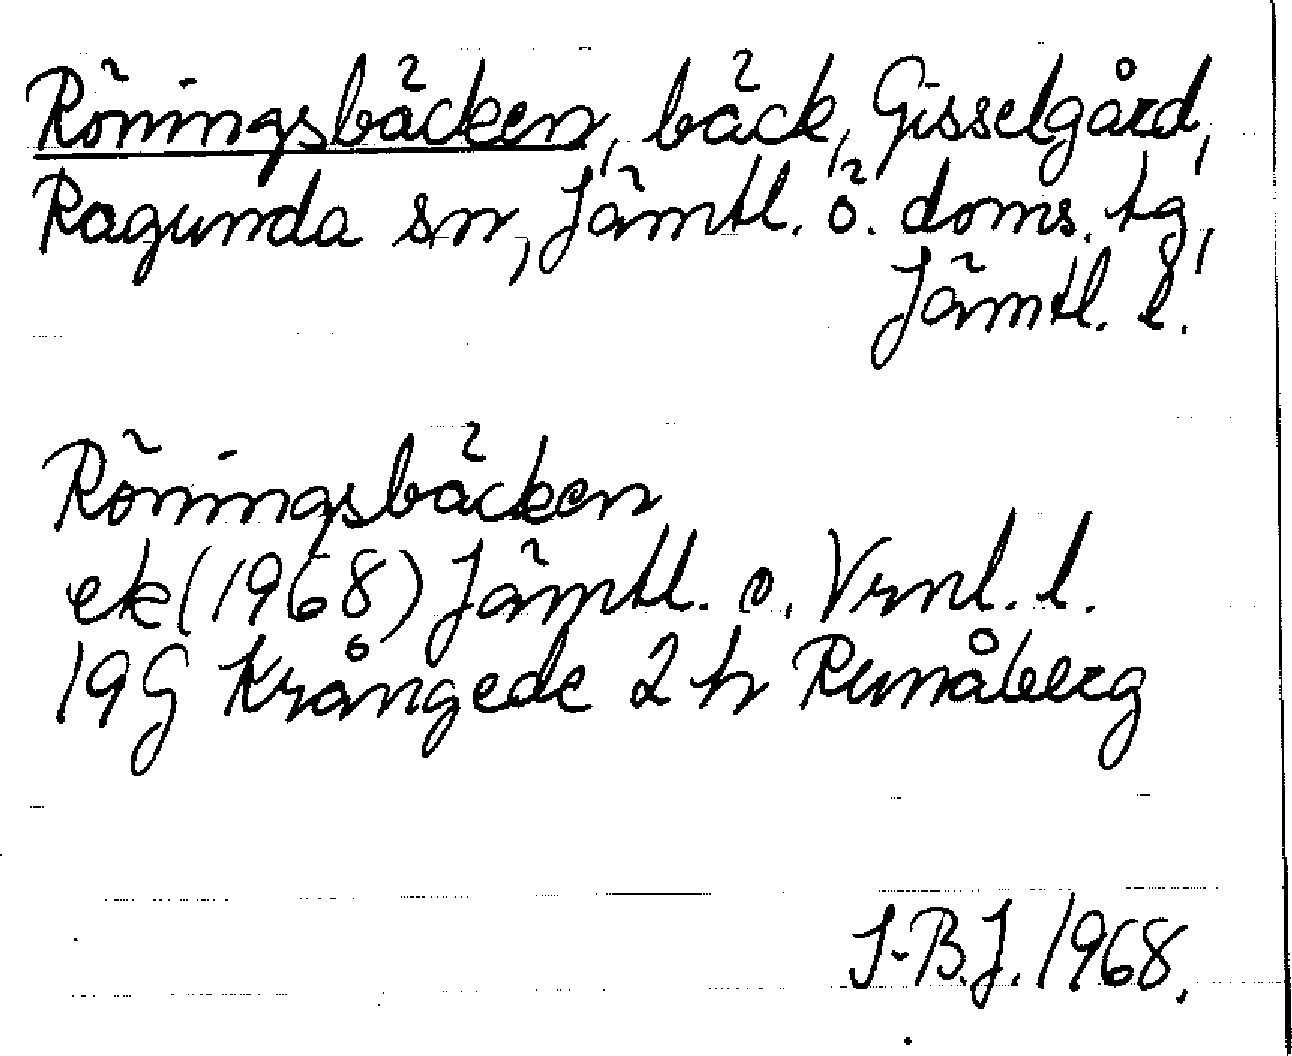 Röningsbäcken, bäck, Gisselgård,
Ragunda sn, Jämtl. ö. doms. tg,
Jämtl. l.
Röningsbäcken
ek (1968) Jämtl. o. Vrnl. l.
19G Krångede 2 h Runåberg
I-B.J. 1968.